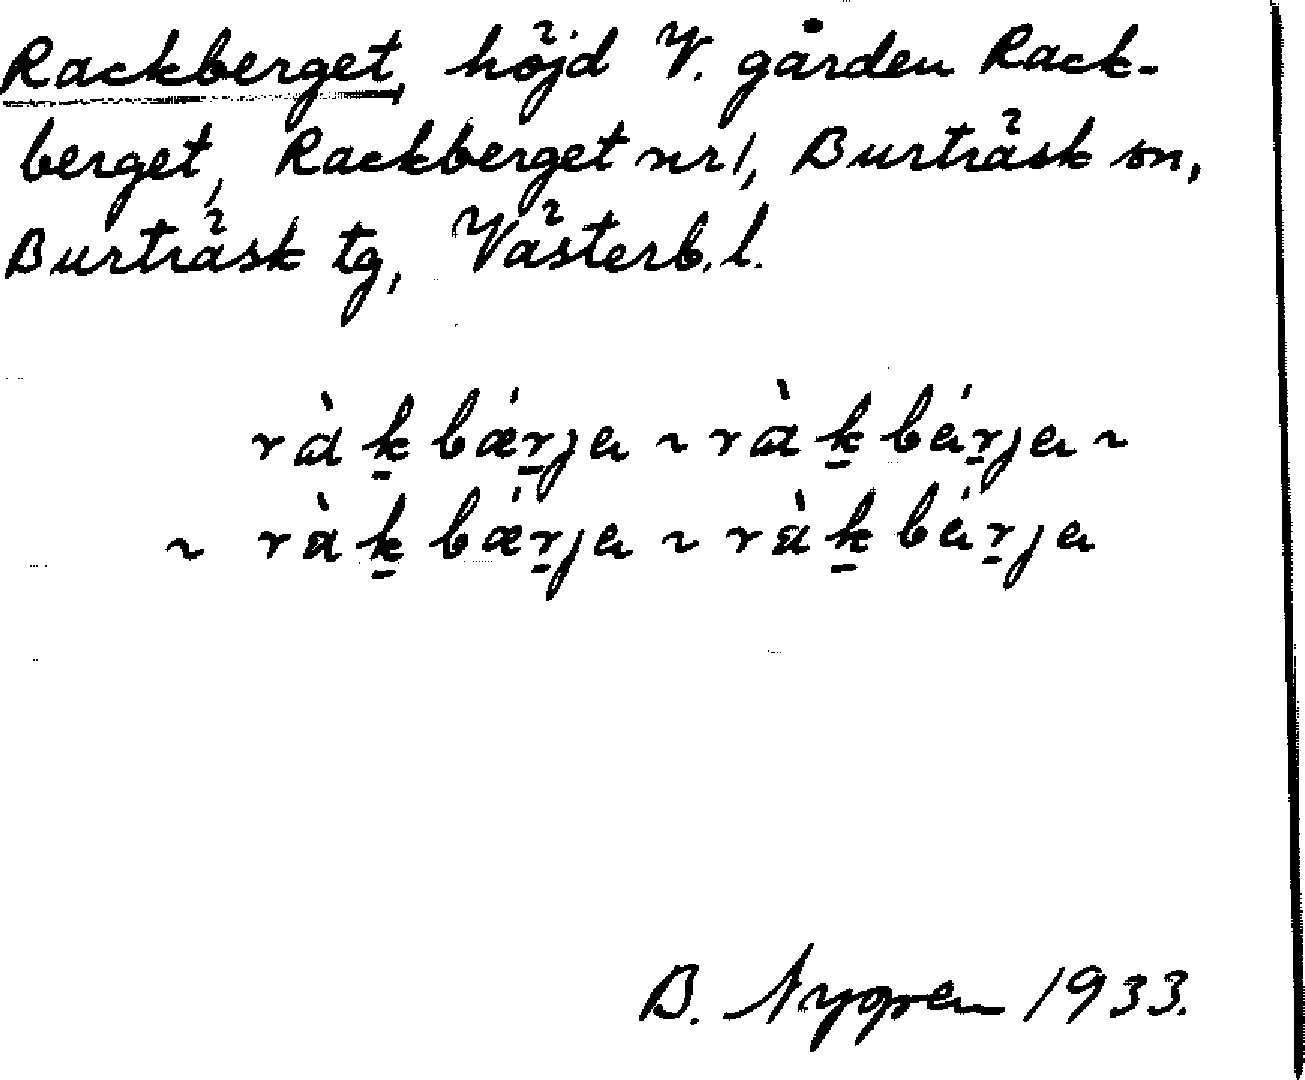 Rackberget, höjd V. gården Rack-
berget, Rackberget nr 1, Burträsk sn,
Burträsk tg, Västerb. l.
ràk̠bǽr̠ja ~ ràk̠bár̠ja ~
~ ràk̠bǽr̠ja ~ ràk̠bár̠ja
B. Nygren 1933.